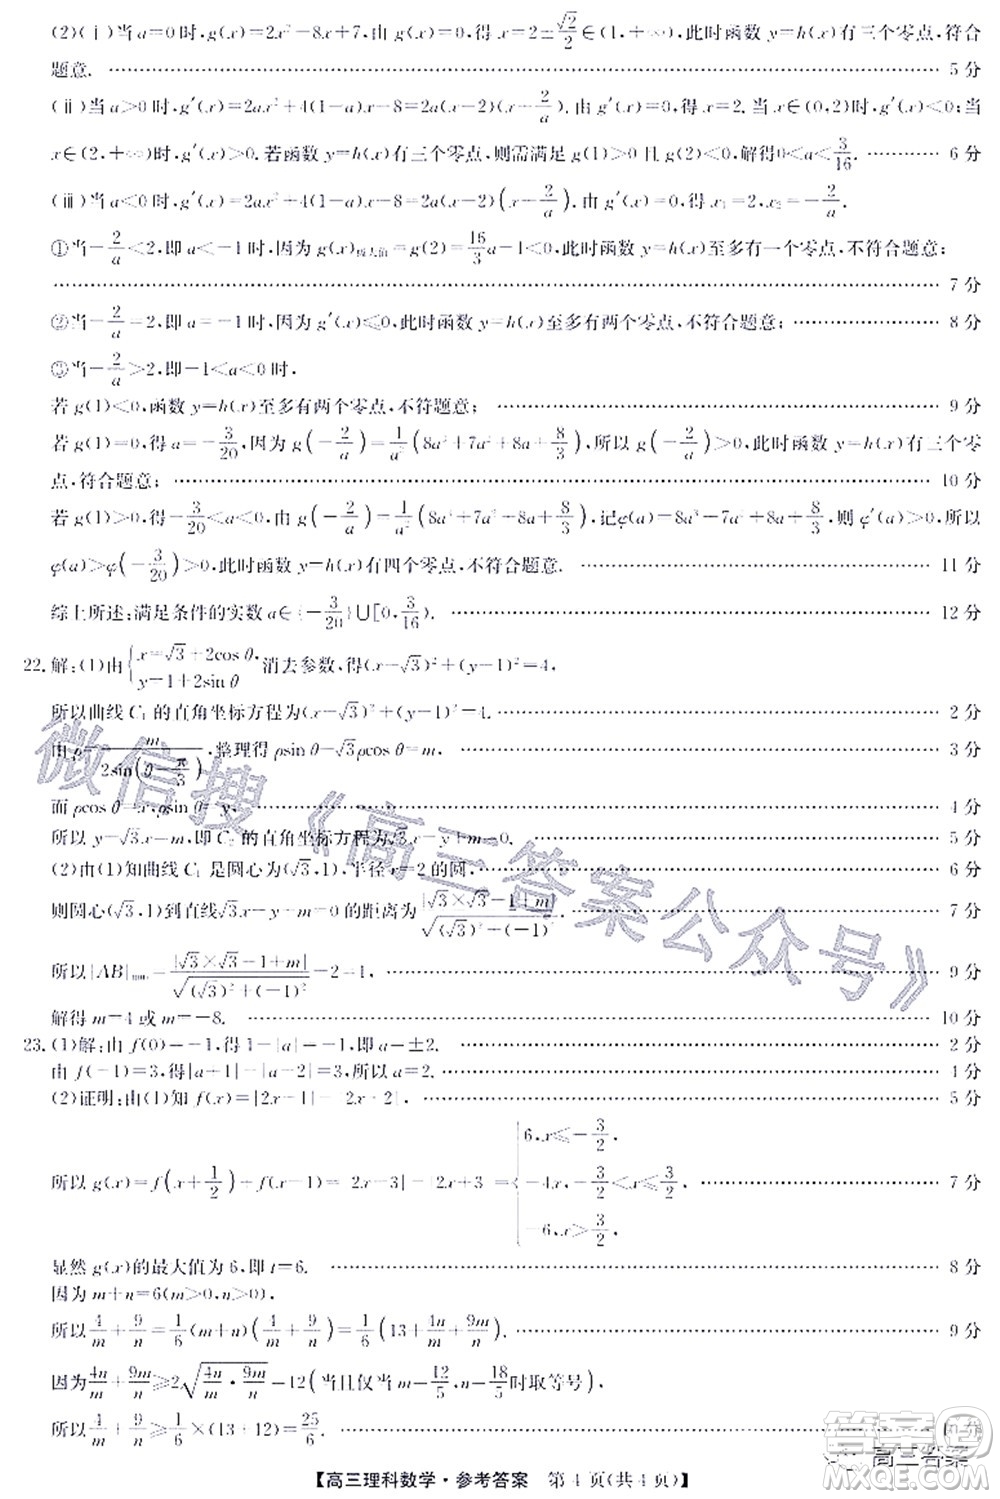 (2)(ⅰ)当a=0时,g(x)=2x²-8x+7,由g(x)=0,得x=2±√2/2∈(1,+∞),此时函数y=h(x)有三个零点,符合
题意. 5分
(ⅱ)当a>0时,g′(x)=2ax²+4(1-a)x-8=2a(x-2)(x+2/a).由g′(x)=0,得x=2.当x∈(0,2)时,g′(x)<0;当
x∈(2,+∞)时,g′(x)>0.若函数y=h(x)有三个零点,则需满足g(1)>0且g(2)<0,解得0<a<3/16. 6分
(ⅲ)当a<0时,g′(x)=2ax²+4(1-a)x-8=2a(x-2)(x+2/a).由g′(x)=0,得x₁=2,x₂=-2/a.
①当-2/a<2,即a<-1时,因为g(x)极大值=g(2)=16/3a-1<0,此时函数y=h(x)至多有一个零点,不符合题意;
7分
②当-2/a=2,即a=-1时,因为g′(x)≤0,此时函数y=h(x)至多有两个零点,不符合题意; 8分
③当-2/a>2,即-1<a<0时,
若g(1)<0,函数y=h(x)至多有两个零点,不符题意; 9分
若g(1)=0,得a=-3/20,因为g(-2/a)=1/a²(8a³+7a²+8a+8/3),所以g(-2/a)>0,此时函数y=h(x)有三个零
点,符合题意; 10分
若g(1)>0,得-3/20<a<0,由g(-2/a)=1/a²(8a³+7a²+8a+8/3),记φ(a)=8a³+7a²+8a+8/3,则φ′(a)>0,所以
φ(a)>φ(-3/20)>0,此时函数y=h(x)有四个零点,不符合题意. 11分
综上所述:满足条件的实数a∈{-3/20}∪[0,3/16). 12分
22.解:(1)由{x=√3+2cosθ, y=1+2sinθ 消去参数,得(x-√3)²+(y-1)²=4,
所以曲线C₁的直角坐标方程为(x-√3)²+(y-1)²=4. 2分
由ρ=m/2sin(θ-π/3),整理得ρsinθ-√3ρcosθ=m, 3分
而ρcosθ=x,ρsinθ=y, 4分
所以y-√3x=m,即C₂的直角坐标方程为√3x-y+m=0. 5分
(2)由(1)知曲线C₁是圆心为(√3,1),半径r=2的圆, 6分
则圆心(√3,1)到直线√3x-y+m=0的距离为|√3×√3-1+m|/√((√3)²+(-1)²), 7分
所以|AB|min=|√3×√3-1+m|/√((√3)²+(-1)²)-2=1, 9分
解得m=4或m=-8. 10分
23.(1)解:由f(0)=-1,得1-|a|=-1,即a=±2. 2分
由f(-1)=3,得|a+1|-|a-2|=3,所以a=2. 4分
(2)证明:由(1)知f(x)=|2x-1|-|2x+2|, 5分
所以g(x)=f(x+1/2)+f(x-1)=|2x-3|-|2x+3|={6,x≤-3/2, -4x,-3/2<x≤3/2, -6,x>3/2. 7分
显然g(x)的最大值为6,即t=6. 8分
因为m+n=6(m>0,n>0),
所以4/m+9/n=1/6(m+n)(4/m+9/n)=1/6(13+4n/m+9m/n). 9分
因为4n/m+9m/n≥2√(4n/m·9m/n)=12(当且仅当m=12/5,n=18/5时取等号),
所以4/m+9/n≥1/6×(13+12)=25/6. 10分
【高三理科数学·参考答案 第4页(共4页)】
微信搜《高三答案公众号》
答案圈
高三答案
MXQE.COM